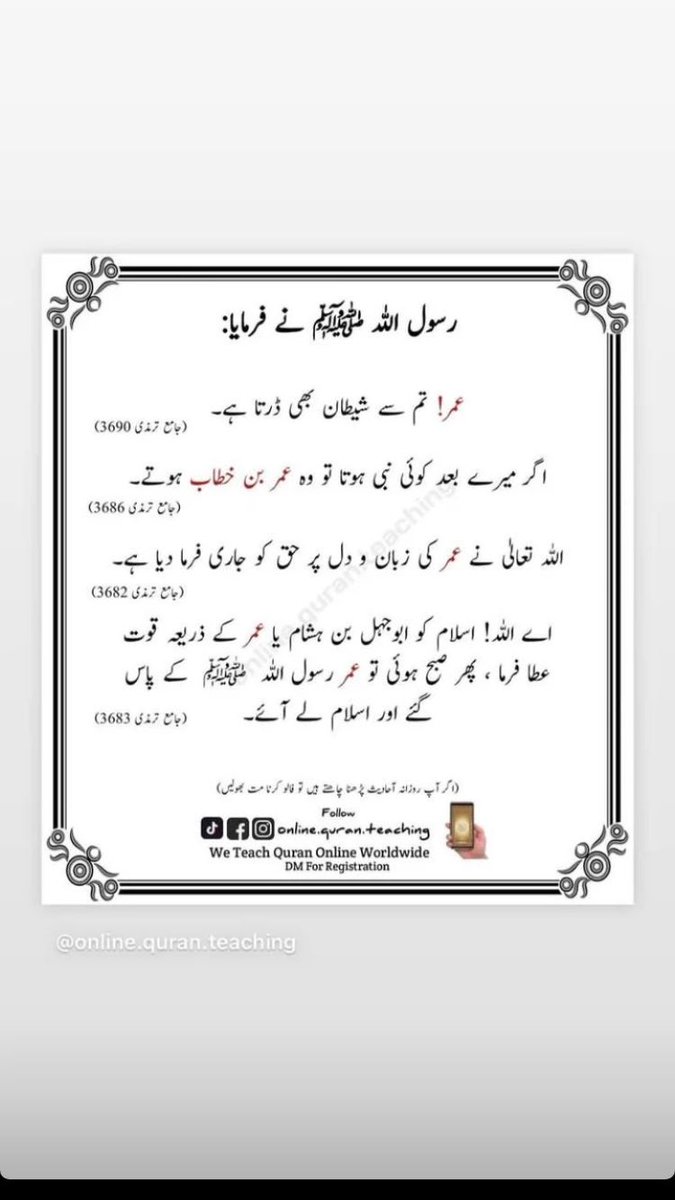 رسول اللہ ﷺ نے فرمایا:
عمر! تم سے شیطان بھی ڈرتا ہے۔
(جامع ترمذی 3690)
اگر میرے بعد کوئی نبی ہوتا تو وہ عمر بن خطاب ہوتے۔
(جامع ترمذی 3686)
اللہ تعالیٰ نے عمر کی زبان و دل پر حق کو جاری فرما دیا ہے۔
(جامع ترمذی 3682)
اے اللہ! اسلام کو ابوجہل بن ہشام یا عمر کے ذریعہ قوت
عطا فرما ، پھر صبح ہوئی تو عمر رسول اللہ ﷺ کے پاس
گئے اور اسلام لے آئے۔
(جامع ترمذی 3683)
(اگر آپ روزانہ احادیث پڑھنا چاہتے ہیں تو فالو کرنا مت بھولیں)
Follow
online.quran.teaching
We Teach Quran Online Worldwide
DM For Registration
online.quran.teaching
@online.quran.teaching